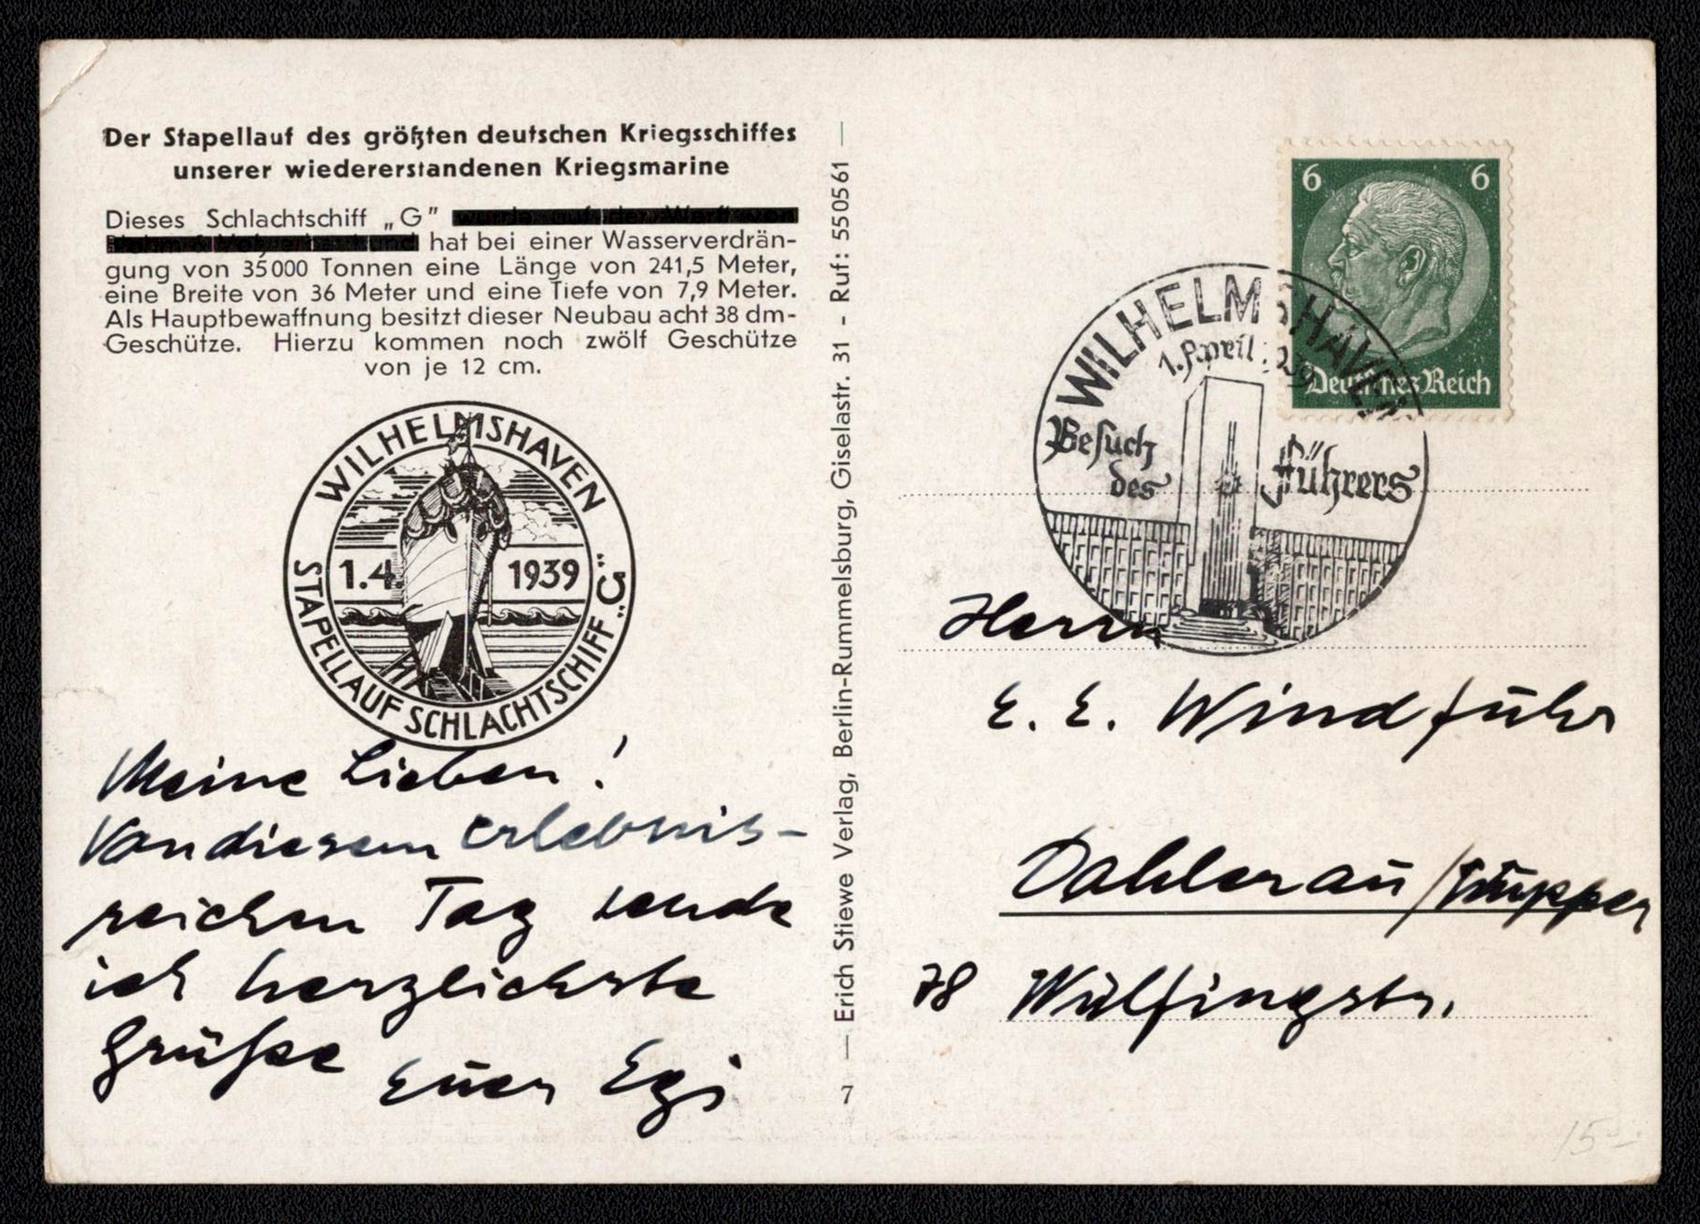 Der Stapellauf des größten deutschen Kriegsschiffes
unserer wiedererstandenen Kriegsmarine
Dieses Schlachtschiff „G”
hat bei einer Wasserverdrän-
gung von 35000 Tonnen eine Länge von 241,5 Meter,
eine Breite von 36 Meter und eine Tiefe von 7,9 Meter.
Als Hauptbewaffnung besitzt dieser Neubau acht 38 dm-
Geschütze. Hierzu kommen noch zwölf Geschütze
von je 12 cm.
WILHELMSHAVEN
1.4. 1939
STAPELLAUF SCHLACHTSCHIFF „G“
Meine Lieben!
Von diesem erlebnis-
reichen Tag sende
ich herzlichste
Grüße Euer Egi
— Erich Stiewe Verlag, Berlin-Rummelsburg, Giselastr. 31 - Ruf: 550561 —
7
6 6
Deutsches Reich
WILHELMSHAVEN
1. April
Besuch
des Führers
Herrn
E. E. Windfuhr
Dahlerau/Wupper
78 Wülfingstr.
15-